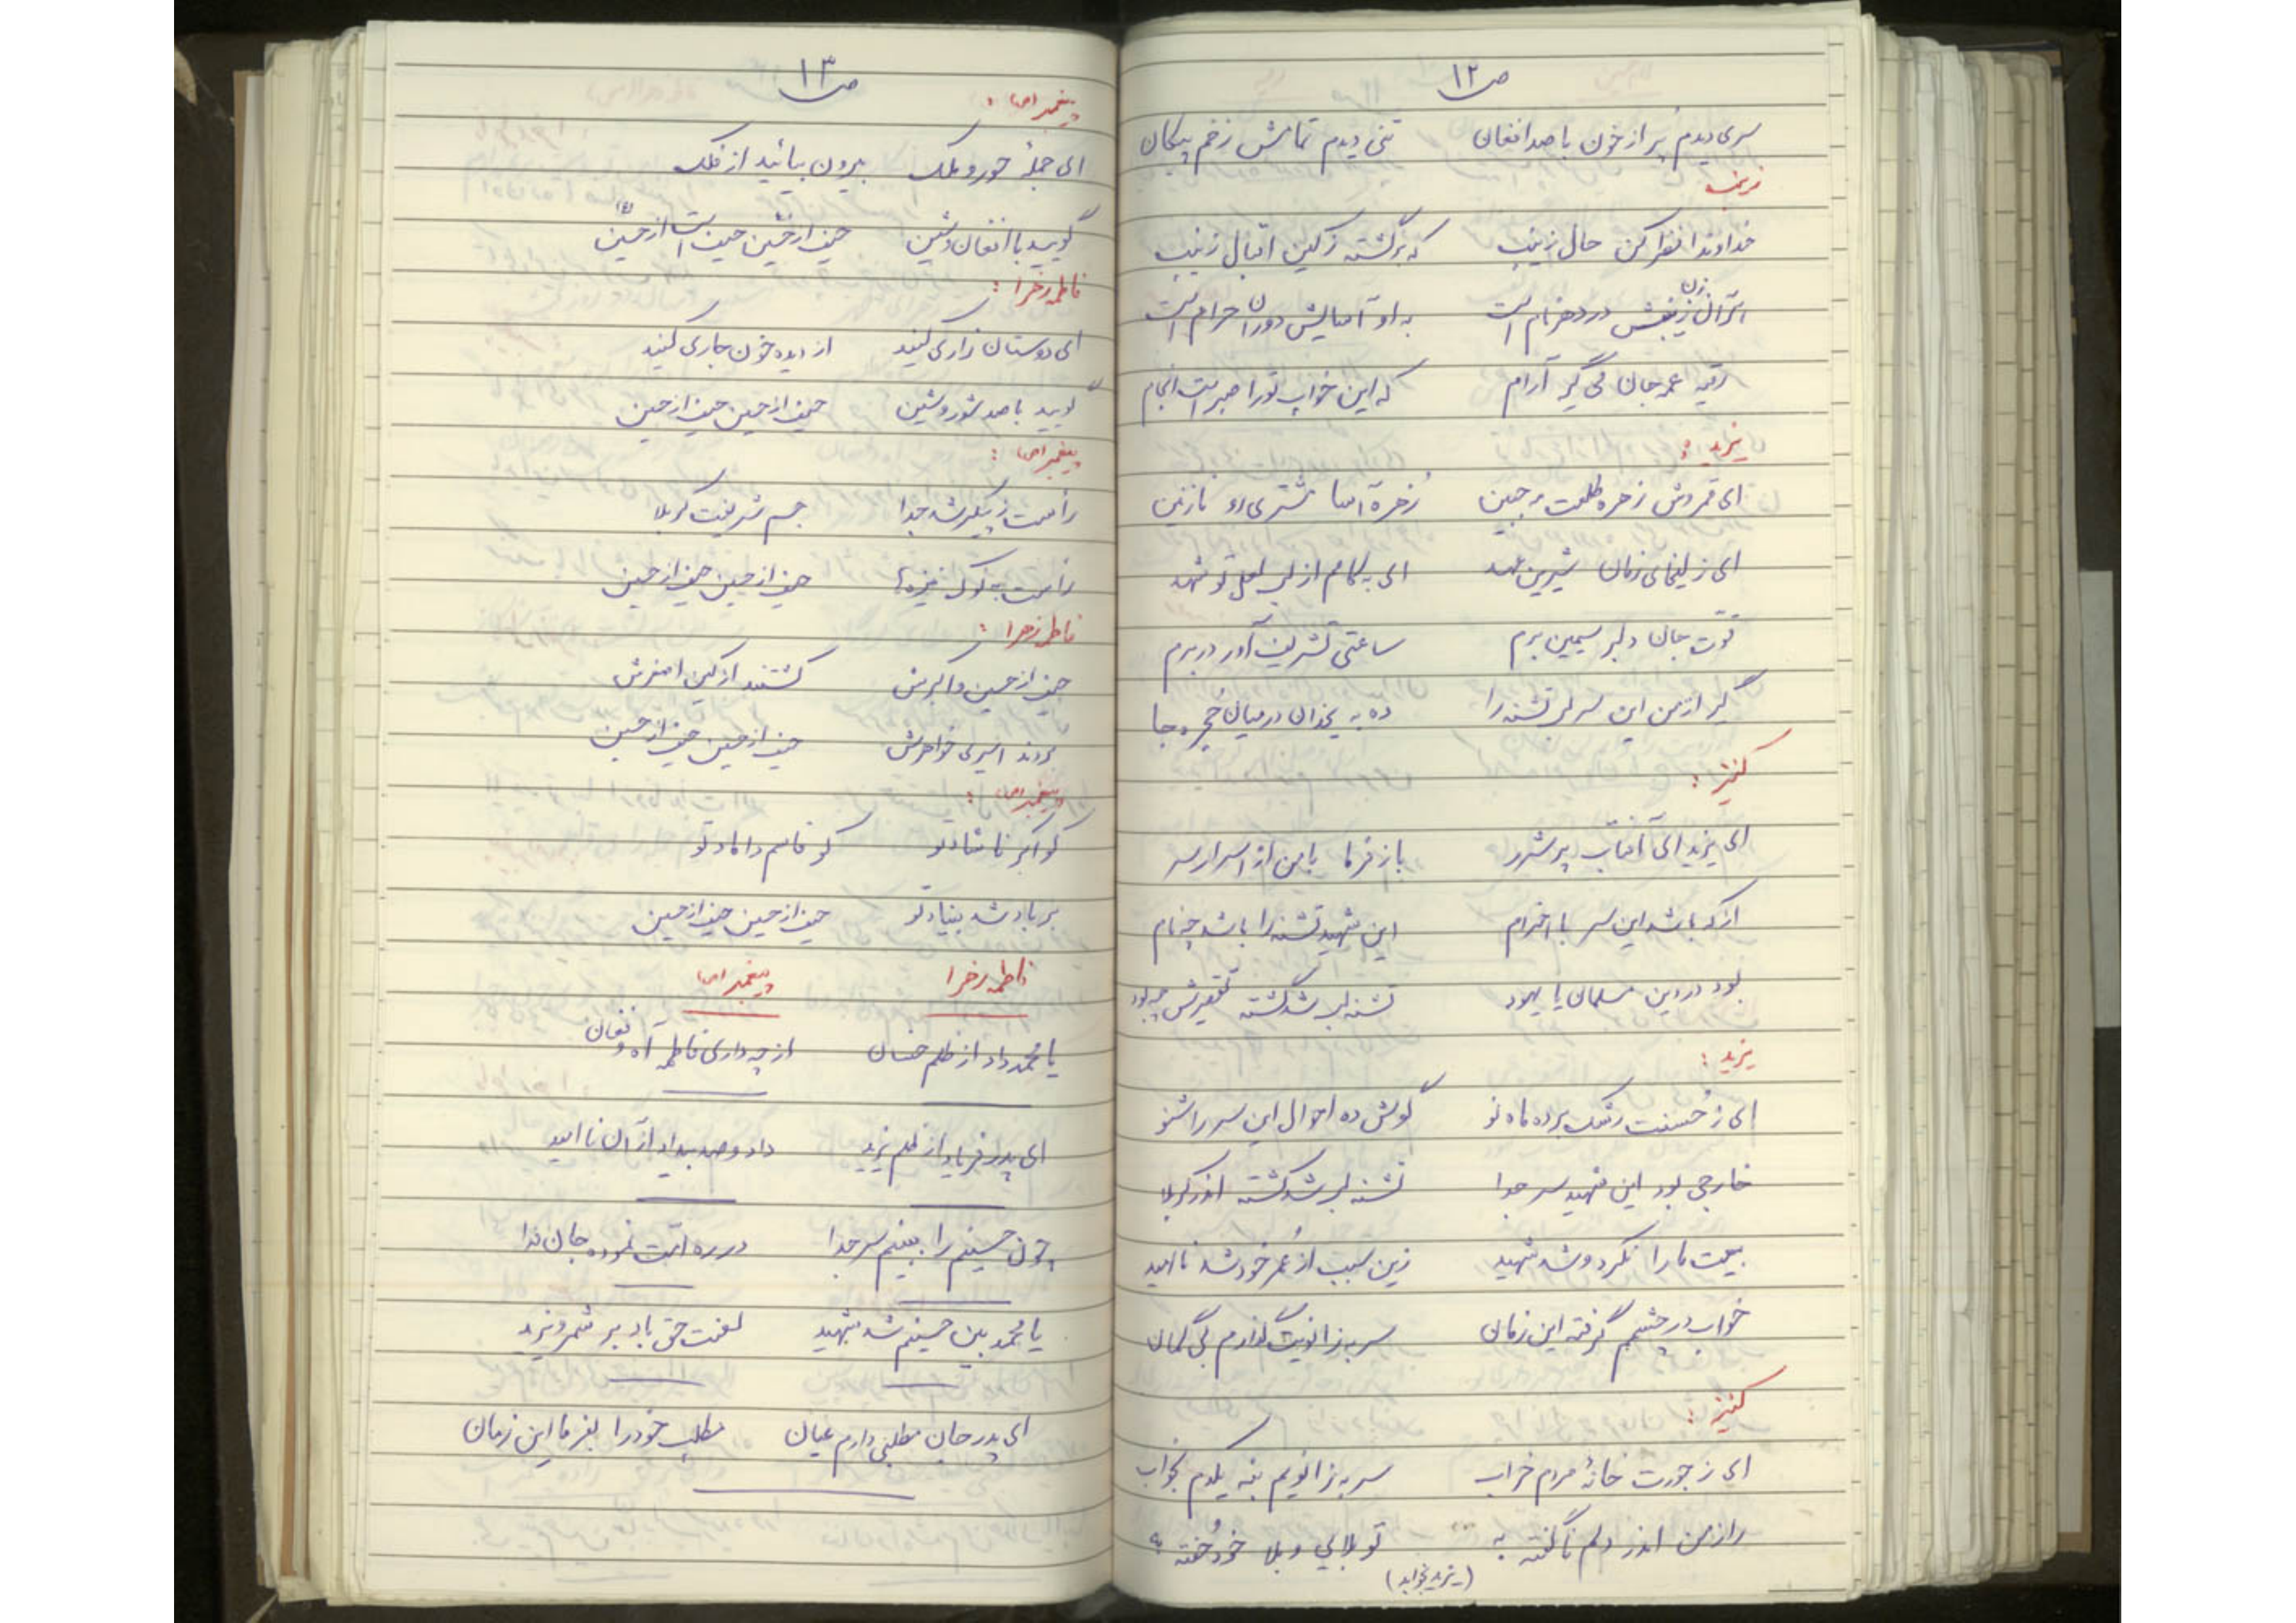 ص ۱۲
سری دیدم پر از خون با صد افغان تنی دیدم تمامش زخم پیکان
زینب
خداوندا نظر کن حال زینب که برگشته ز کین اقبال زینب
زن در دهر نام است به او آسایش دوران حرام است
رقیه عمه جان می گیر آرام که این خواب تو را صبر است انجام
یزید :
ای قمروش زهره طلعت مه جبین زُهره آسا مشتری رو نازنین
ای زلیخای زمان شیرین عهد ای به کامم از لب لعل تو شهد
قوّت جان دلبر سیمین برم ساعتی تشریف آور در برم
گیر از من این سر لب تشنه را ده به یخدان در میان حجره جا
کنیز :
ای یزید ای آفتاب پر شرر باز فرما با من از اسرار سر
از که باشد این سر با احترام این شهید تشنه را باشد چه نام
بود در دین مسلمان یا یهود تشنه لب شد کشته تقصیرش چه بود
یزید :
ای ز حُسنت رشک برده ماه نو گوش ده احوال این سر را شنو
خارجی بود این شهید سر جدا تشنه لب شد کشته اندر کربلا
بیعت ما را نکرد و شد شهید زین سبب از عُمر خود شد ناامید
خواب در چشمم گرفته این زمان سر به زانویت گذارم بی گمان
کنیز :
ای ز جورت خانهٔ مردم خراب سر به زانویم بنه یکدم بخواب
راز من اندر دلم ناگفته به تو بلایی و بلا خود خُفته به
(یزید بخوابد)
ص ۱۳
پیغمبر (ص) :
ای جملهٔ حور و ملک بیرون بیائید از فلک
گویید با افغان و شین حیف از حسین حیف است از حسین
فاطمه زهرا :
ای دوستان زاری کنید از دیده خون جاری کنید
گویید با صد شور و شین حیف از حسین حیف از حسین
پیغمبر (ص) :
رأست ز پیکر شد جدا جسم شریفت کربلا
رأست به نوک نیزه‌ها حیف از حسین حیف از حسین
فاطمه زهرا :
حیف از حسین و اکبرش کشتند از کین اصغرش
بردند اسیری خواهرش حیف از حسین حیف از حسین
پیغمبر (ص) :
کو اکبر ناشاد تو کو قاسم داماد تو
بر باد شد بنیاد تو حیف از حسین حیف از حسین
فاطمه زهرا پیغمبر (ص)
یا محمد داد از ظلم خسان از چه داری فاطمه آه و فغان
ای پدر فریاد از ظلم یزید داد و صد بیداد از آن ناامید
چون حسینم را ببینم سر جدا در ره امت نموده جان فدا
یا محمد بین حسینم شد شهید لعنت حق باد بر شمر و یزید
ای پدر جان مطلبی دارم عیان مطلب خود را بفرما این زمان